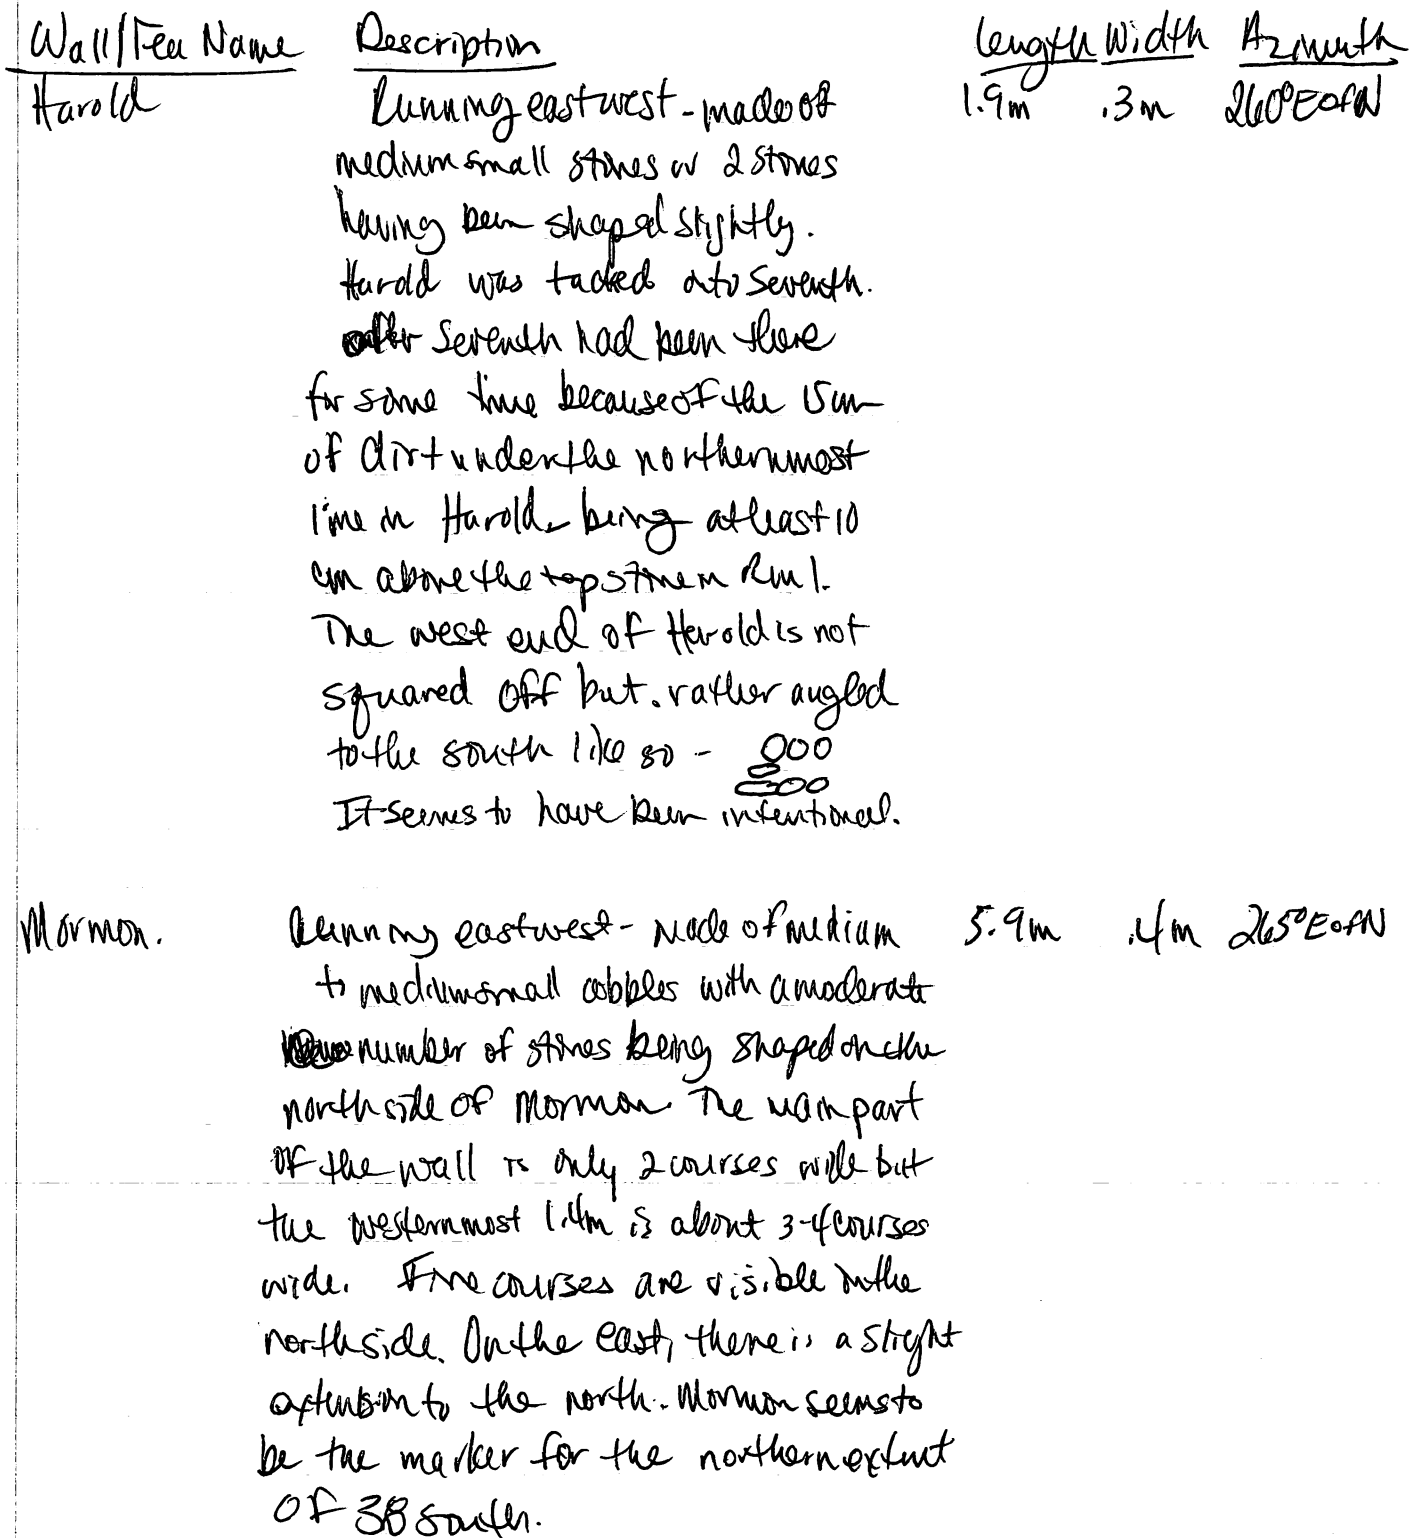 Wall/Fea Name Description Length Width Azimuth
Harold Running east west - made of 1.9m .3m 260° E of N
medium small stones w 2 stones
having been shaped slightly.
Harold was tacked onto Seventh.
after Seventh had been there
for some time because of the 15cm
of dirt under the northernmost
line in Harold, being at least 10
cm above the top stone in Rm 1.
The west end of Harold is not
squared off but. rather angled
to the south like so -
It seems to have been intentional.
Mormon. Running east west - Made of medium 5.9m .4m 265° E of N
to medium small cobbles with a moderate
number of stones being shaped on the
north side of Mormon. The main part
of the wall is only 2 courses wide but
the westernmost 1.4m is about 3-4 courses
wide. Five courses are visible in the
north side. On the east, there is a slight
extension to the north. Mormon seems to
be the marker for the northern extent
of 38 South.